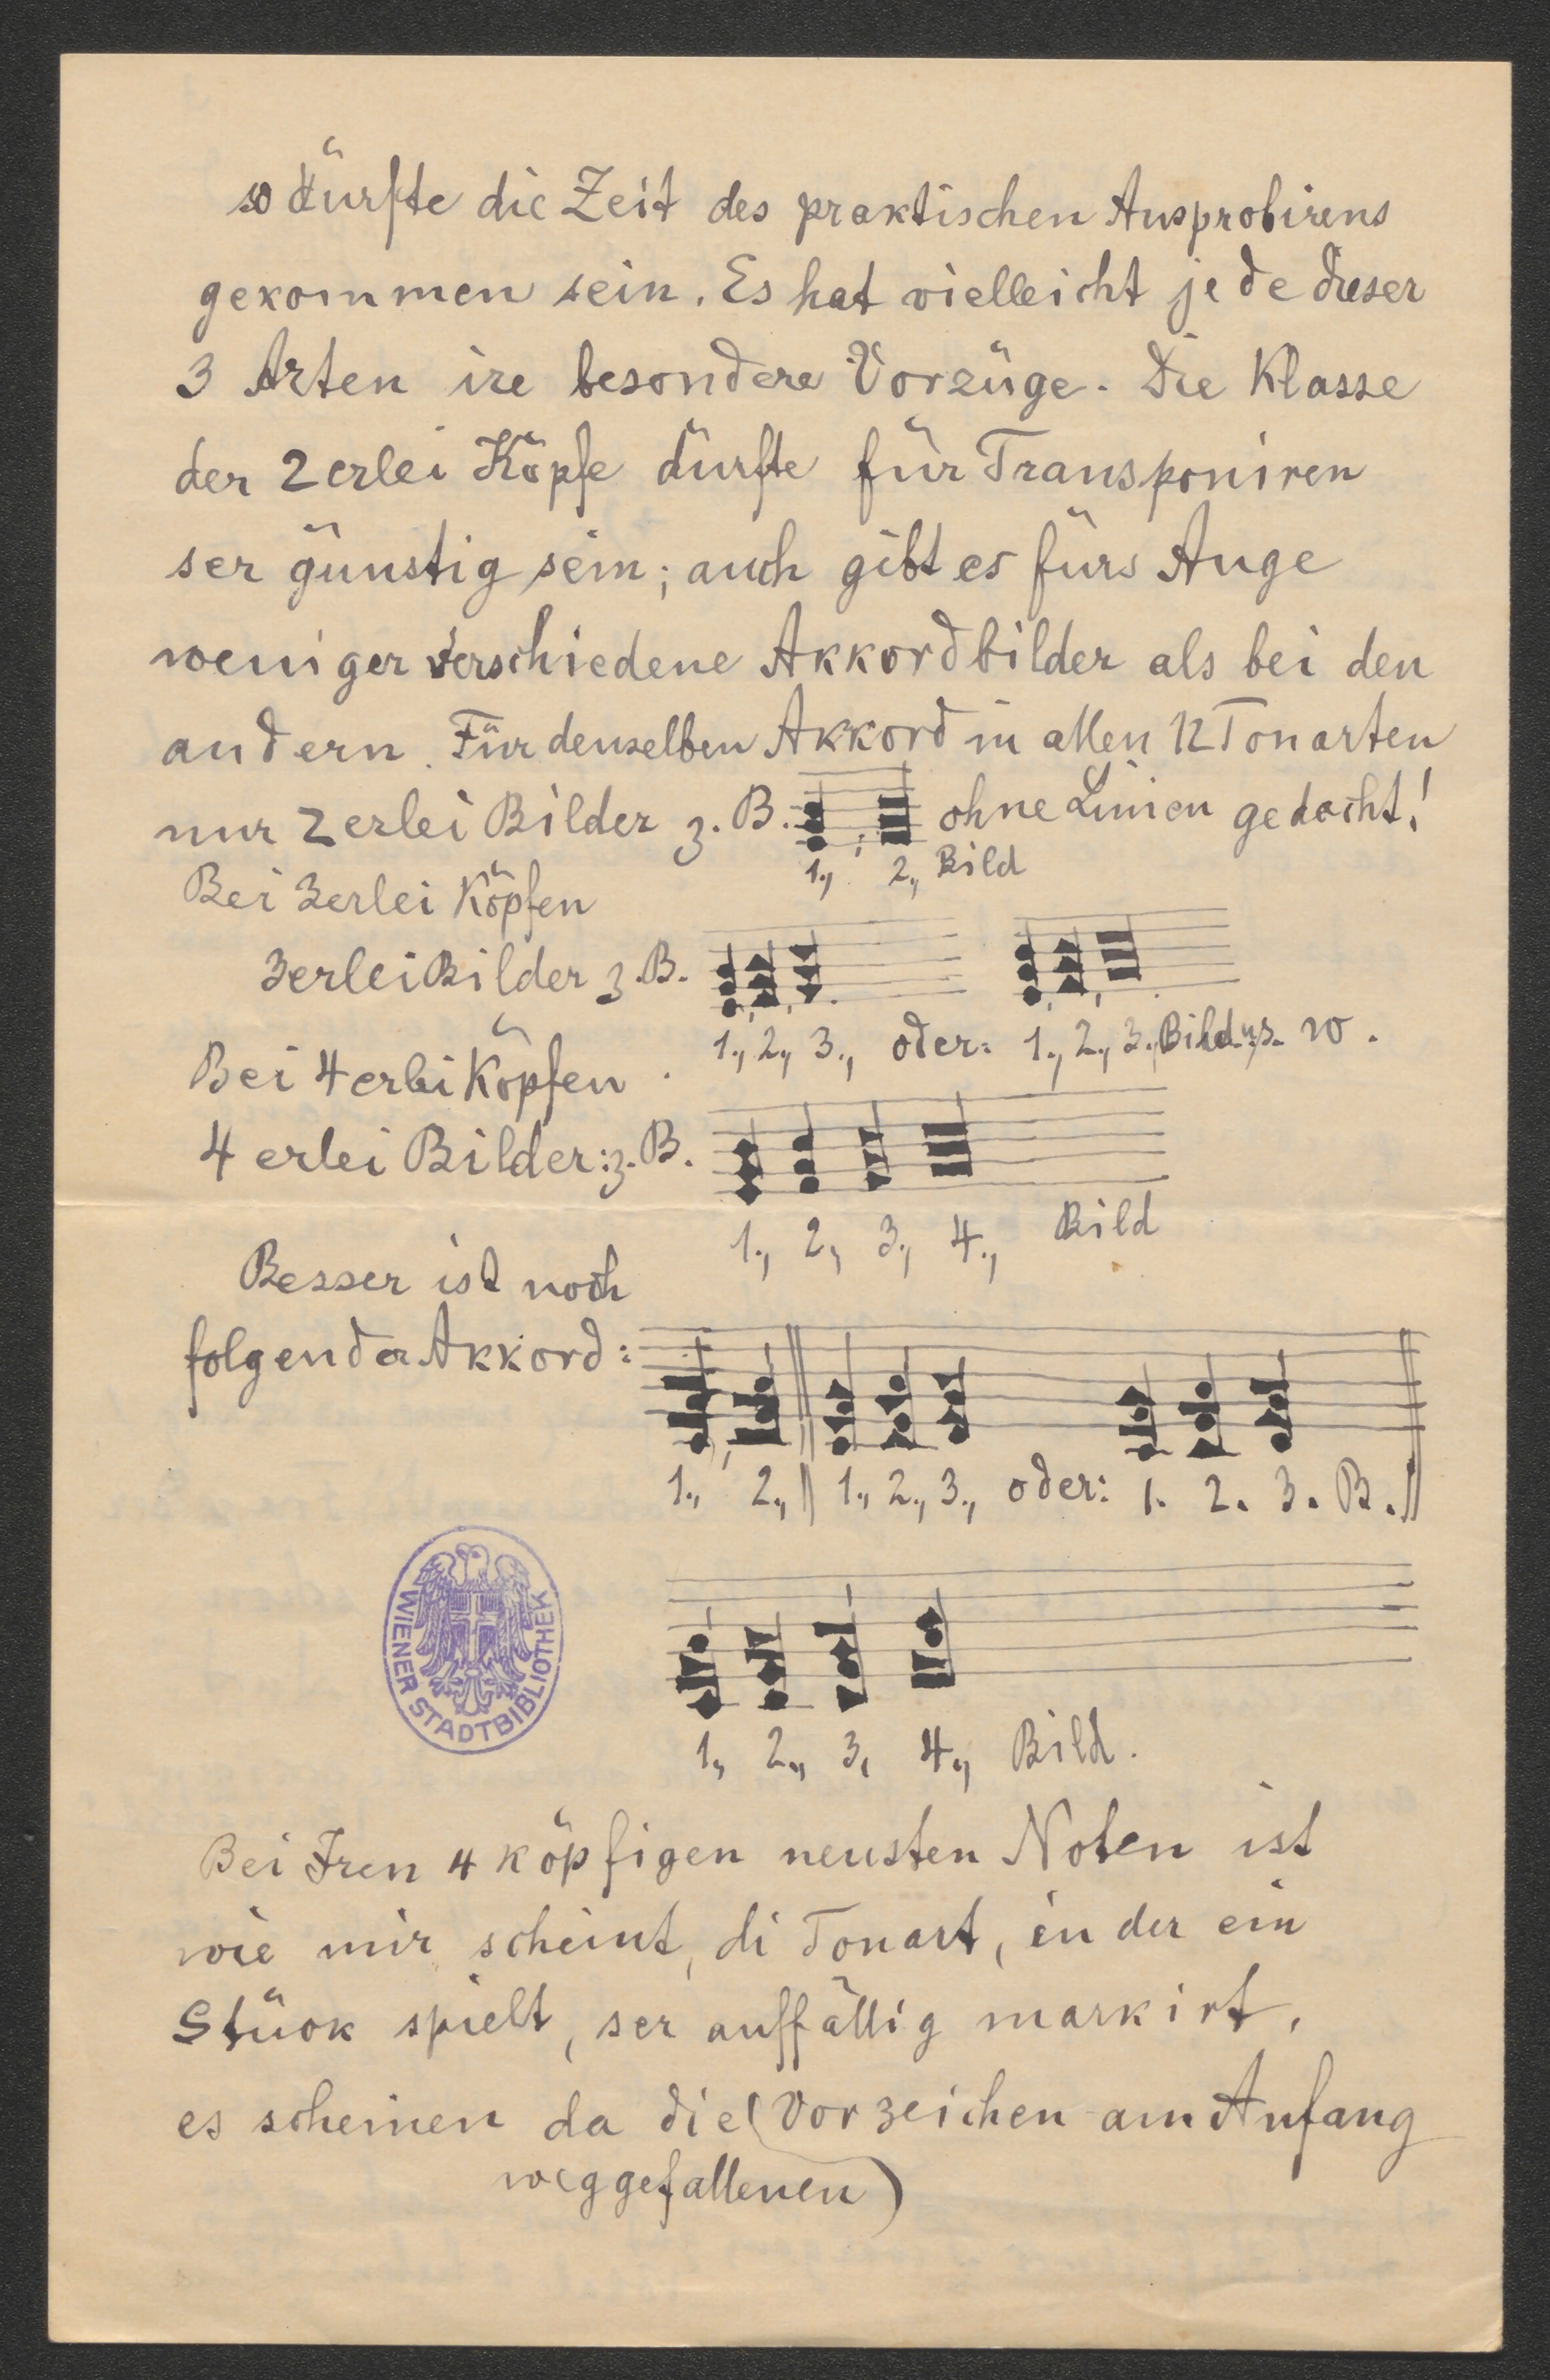 so dürfte die Zeit des praktischen Ausprobirens
gekommen sein. Es hat vielleicht jede dieser
3 Arten ire besondere Vorzüge. Die Klasse
der 2erlei Köpfe dürfte für Transponiren
ser günstig sein; auch gibt es fürs Auge
weniger verschiedene Akkordbilder als bei den
andern. Für denselben Akkord in allen 12 Tonarten
nur 2erlei Bilder z. B. ohne Linien gedacht!
1., 2., Bild
Bei 3erlei Köpfen
3erlei Bilder z. B.
1., 2., 3., oder: 1., 2., 3., Bild u. s. w.
Bei 4erlei Köpfen
4 erlei Bilder: z. B.
1., 2., 3., 4., Bild
Besser ist noch
folgender Akkord:
1., 2., 1., 2., 3., oder: 1. 2. 3. B.
WIENER STADTBIBLIOTHEK
1., 2., 3., 4., Bild.
Bei Iren 4 köpfigen neusten Noten ist
wie mir scheint, di Tonart, in der ein
Stück spielt, ser auffällig markirt,
es scheinen da die (Vorzeichen am Anfang
weggefallenen)